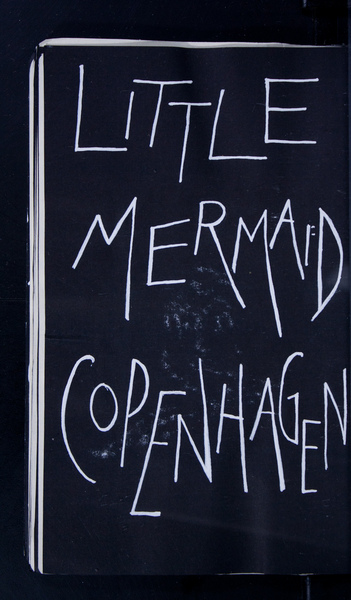 LITTLE
MERMAID
COPENHAGEN